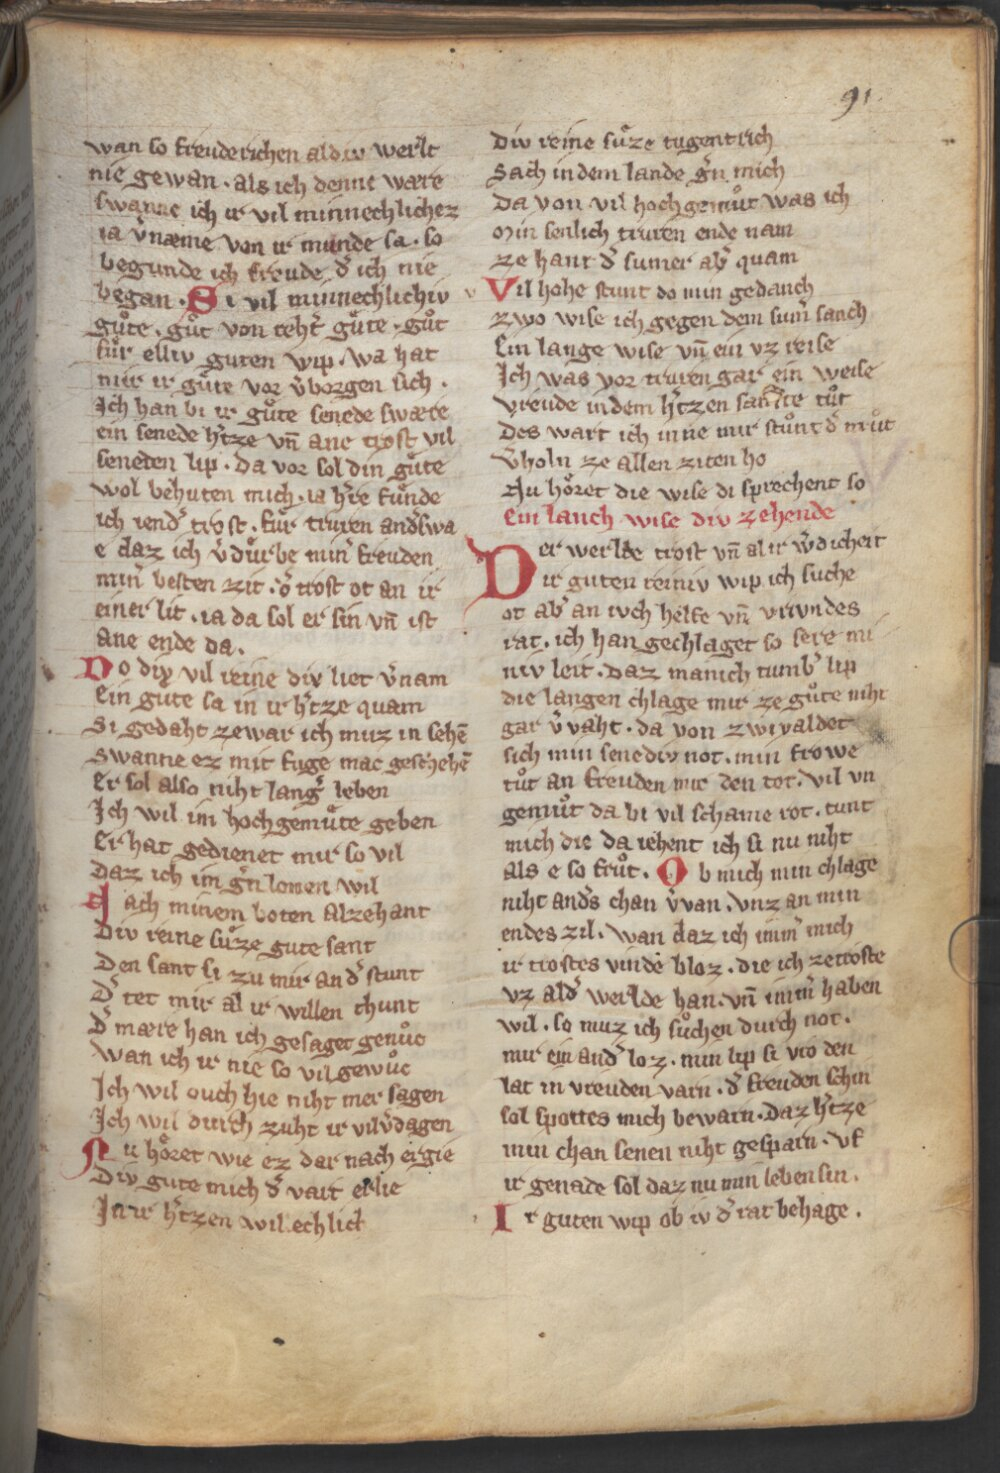 91
wan so freuderichen al div werlt
nie gewan · als ich denne wære
swanne ich ir vil minnechlichez
ia v̓næme von ir munde sa · so
begunde ich freude d̓ ich nie
began · Si vil minnechlichiv
guͦte · guͦt von reht̓ guͤte · guͦt
fuͤr elliv guten wip · wa hat
mir ir guͤte vor v̓borgen sich ·
Ich han bi ir guͤte senede swære
ein senede h̓tze vn̄ ane trost vil
seneden lip · da vor sol din guͤte
wol behuten mich · ia h̓re kuͤnde
ich iend̓ trost · fuͤr truren and̓swa
e daz ich v̓duͤrbe min̓ freuden
min̓ besten zit · d̓ trost ot an ir
einer lit · ia da sol er sin vn̄ ist
ane ende da ·
Do div vil reine div liet v̓nam
Ein gute sa in ir h̓tze quam
Si gedaht zewar ich muz in sehē
Swanne ez mit fuge mac geschehē
Er sol also niht lang̓ leben
Ich wil im hochgemuͤte geben
Er hat gedienet mir so vil
Daz ich im g̓n lonen wil
Nach minem boten alzehant
Div reine suͤze gute sant
Den sant si zu mir an d̓ stunt
D̓ tet mir al ir willen chunt
D̓ mære han ich gesaget genuͦc
Wan ich ir nie so vil gewuͦc
Ich wil ouch hie niht mer sagen
Ich wil durch zuht ir vil v̓dagen
Nu hoͤret wie ez dar nach ergie
Div gute mich d̓ vart erlie
In ir h̓tzen willechlich
Div reine suͤze tugentrich
Sach in dem lande g̓n mich
Da von vil hochgemuͦt was ich
Min senlich truren ende nam
ze hant d̓ sumer ab̓ quam
Vil hohe stunt do min gedanch
zwo wise ich gegen dem sum̓ sanch
Ein lange wise vn̄ ein vz reise
Ich was vor truren gar ein weise
Vreude in dem h̓tzen sanfte tuͦt
Des wart ich inne mir stuͦnt d̓ muͦt
v̓holn ze allen ziten ho
Nu hoͤret die wise di sprechent so
Ein lanch wise div zehende
Der werlde trost vn̄ al ir w̓dicheit
ir guten reiniv wip ich suche
ot ab̓ an ivch helfe vn̄ vrivndes
rat · ich han gechlaget so sere mi
niv leit · daz manich tumb̓ lip
die langen chlage mir ze guͤte niht
gar v̓vaht · da von zwivaldet
sich min senediv not · min frowe
tuͦt an freuden mir den tot · vil vn
gemuͦt da bi vil schame rot · tunt
mich die da iehent ich si nu niht
als e so fruͦt · Ob mich min chlage
niht and̓s chan v̓van · vnz an min
endes zil · wan daz ich imm̓ mich
ir trostes vinde bloz · die ich ze troste
vz ald̓ werlde han · vn̄ imm̓ haben
wil · so muz ich suͦchen durch not ·
mir ein and̓ loz · min lip si vro den
lat in vreuden varn · d̓ freuden schin
sol spottes mich bewarn · Daz h̓tze
min chan senen niht gesparn · Vf
ir genade sol daz nu min leben sin ·
Ir guten wip ob iv d̓ rat behage ·